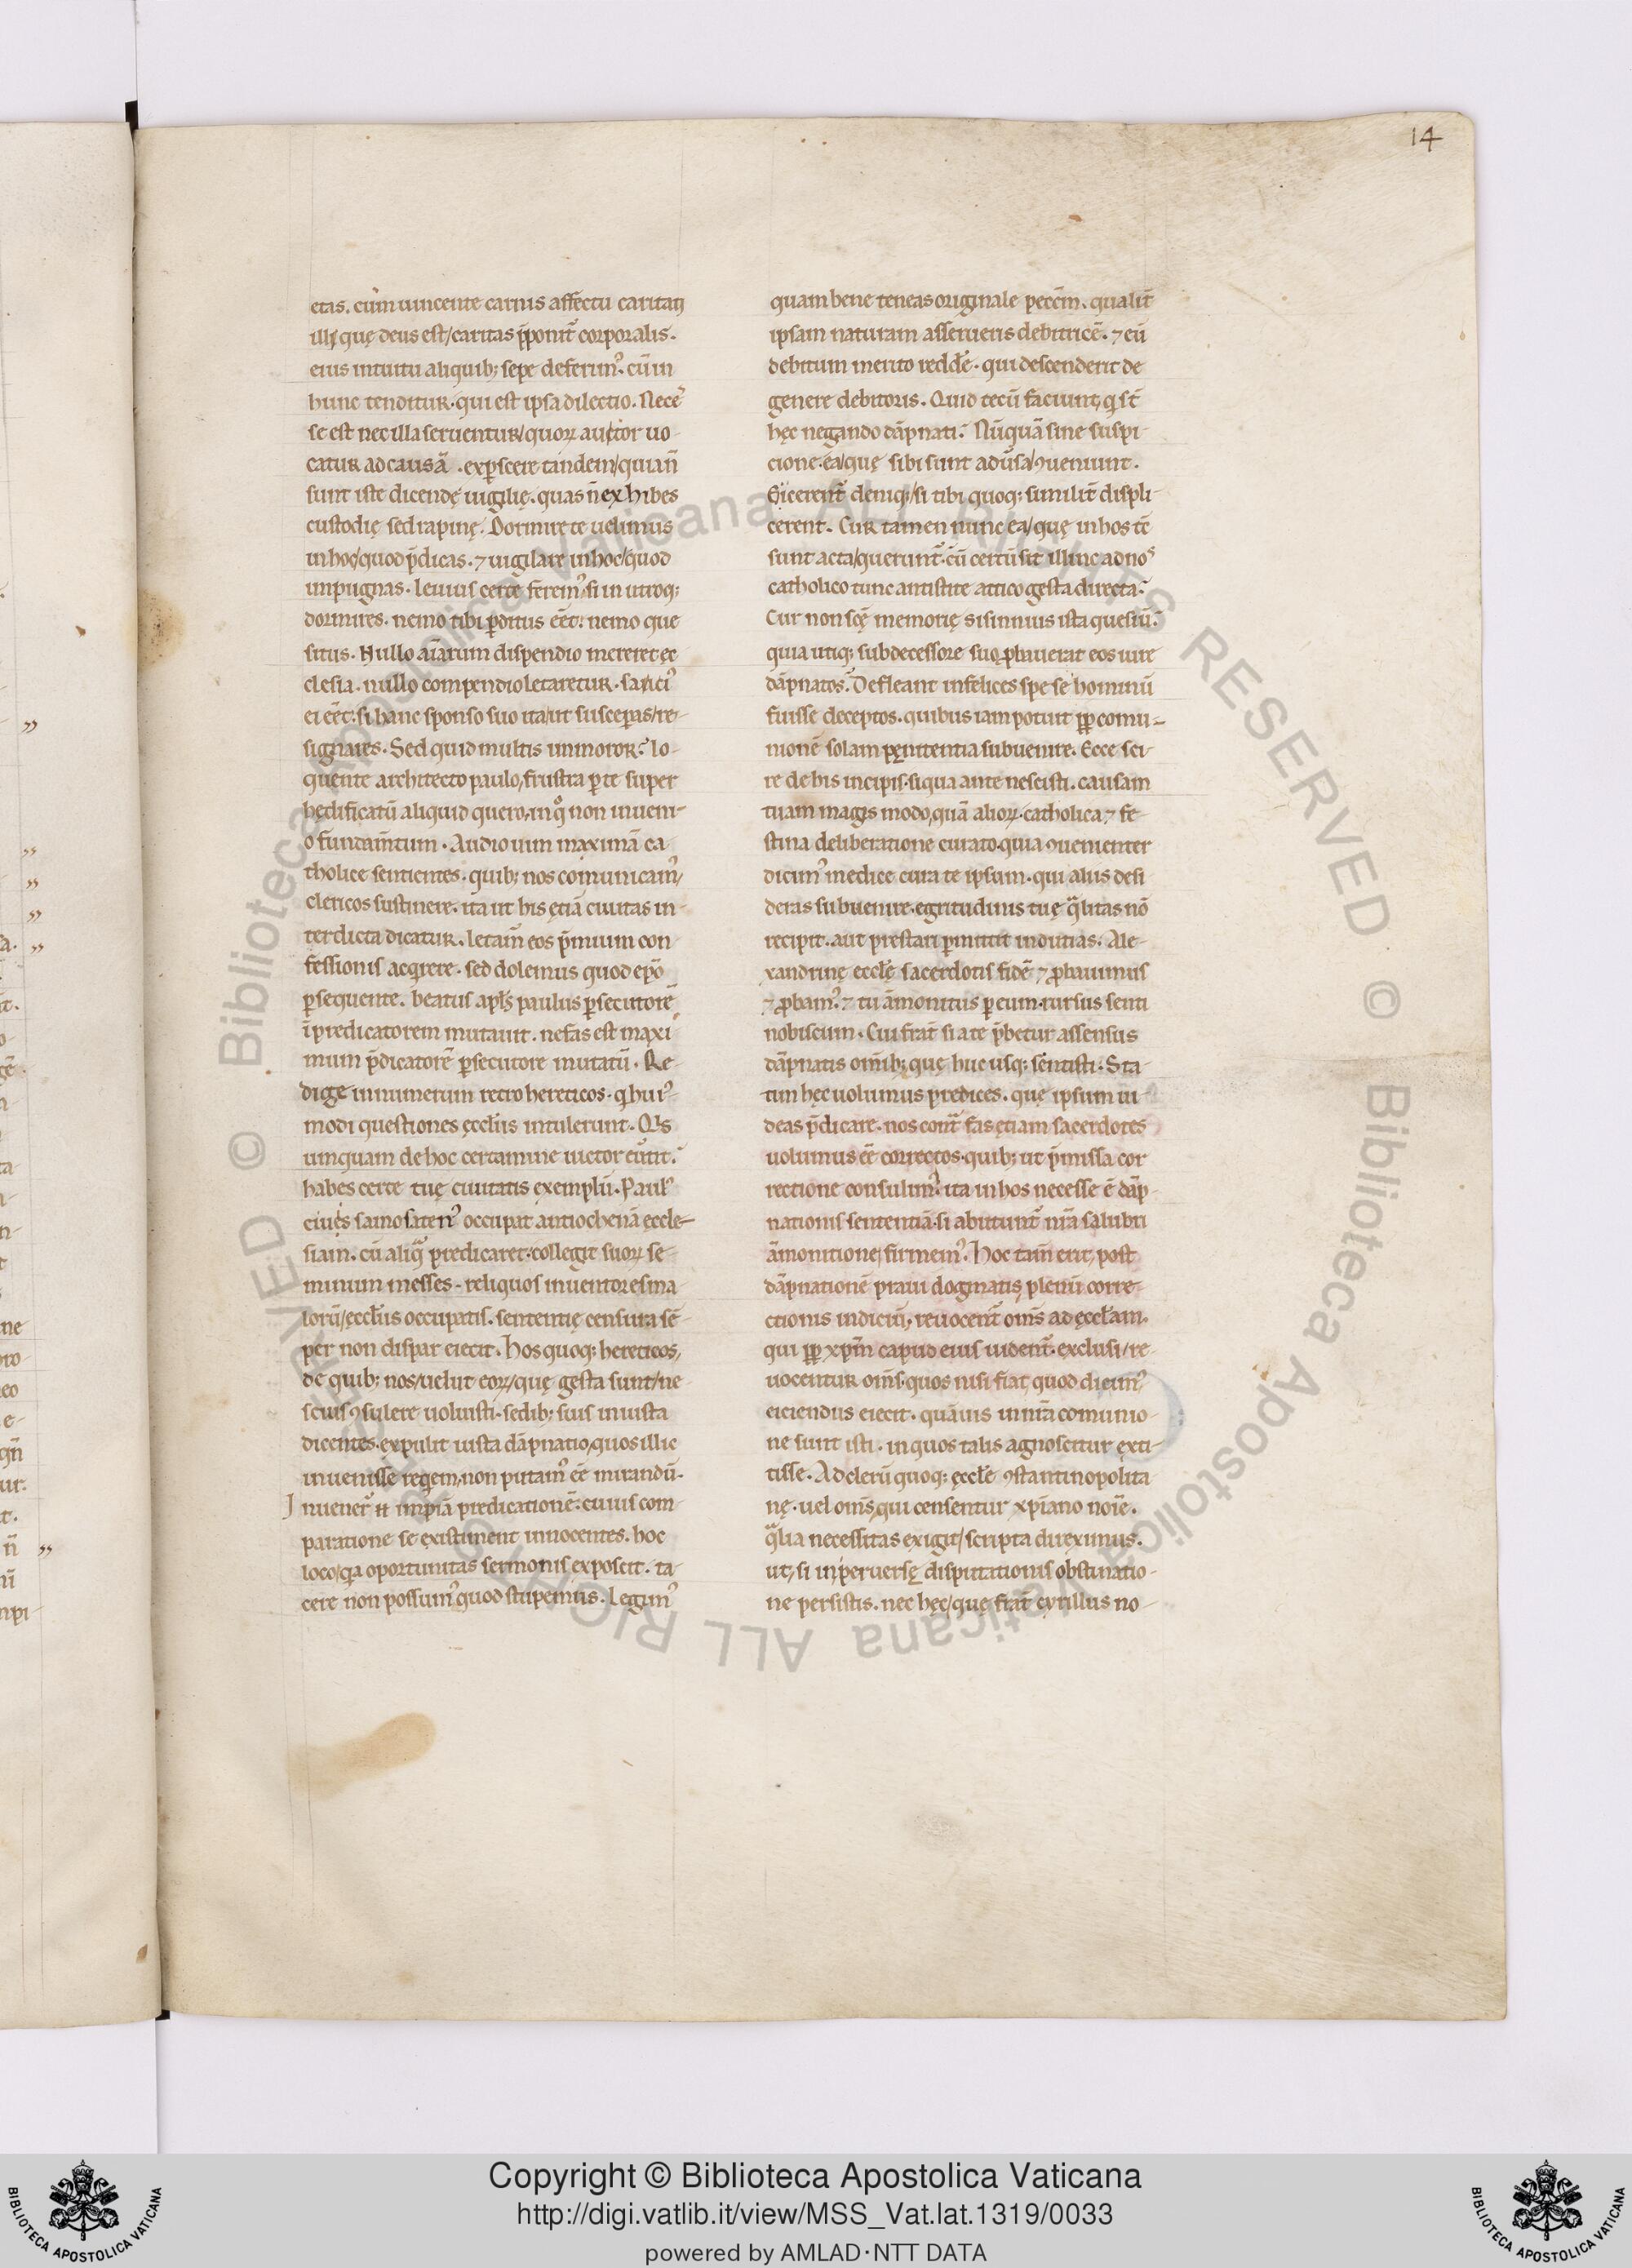 14
etas. cum uincente carnis affectu caritati
illi quę deus est/caritas p̄ponit᷑ corporalis.
eius intuitu aliquib; sepe deferim᷒. cū in
hunc tenditur. qui est ipsa dilectio. Nece
se est nec illa seruentur/quoꝝ auctor uo-
catur ad causā. expꝑscere tandem/quia n̄
sunt iste dicendę uigilię. quas n̄ exhibes
custodię sed rapinę. Dormire te uelimus
in hoc/quod p̄dicas. ⁊ uigilare in hoc/quod
impugnas. leuius certe ferem᷒/si in utroq;
dormires. nemo tibi ꝑditus eēt. nemo que
situs. Nullo aīarum dispendio mereret ec
clesia. nullo compendio letaretur. sat ci᷒
ei eēt. si hanc sponso suo ita/ut susceperas/re-
signares. Sed quid multis immoror? lo-
quente architecto paulo, frustra ꝑ te super
hędificatū aliquid quero, in qͦ non inueni-
o fundam̄tum. Audio uim maximā ca
tholice sentientes. quib; nos comunicam᷒,
clericos sustinere. ita ut his ętiā ciuitas in-
terdicta dicatur. letam̄ eos p̄mium con
fessionis acq̇rere. sed dolemus quod ep̄o
ꝑsequente. beatus apl̄s paulus ꝑsecutorē
ī predicatorem mutauit. nefas est maxi
mum p̄dicatorē ꝑsecutore mutatū. Re-
dige in numerum retro hereticos. q̇ hui᷒-
modi questiones ęccl̄iis intulerunt. Q̇s
umquam de hoc certamine uictor eūtit.
habes certe tuę ciuitatis exemplū. Paul᷒
ciues samosaten᷒ occupat antiochenā eccle-
siam. cū aliq̄ predicaret. collegit suoꝝ se-
minum messes. reliquos inuentores ma
lorū/eccl̄iis occupatis. sententię censura sē
per non dispar eiecit. Hos quoq; hereticos,
de quib; nos/uelut eoꝝ/quę gesta sunt/ne
scius ꝯsulere uoluisti. sedib; suis iniusta
dicentes. expulit iusta dāpnatio, quos illic
inuenisse req̇em, non putam᷒ eē mirandū.
Inuener̄t n̄ impiā predicationē. cuius com-
paratione se existiment innocentes. hoc
loco/q̇a oportunitas sermonis exposcit. ta-
cere non possum᷒ quod stupemus. Legim᷒
quam bene teneas originale pecc̄m. qualit᷑
ipsam naturam asserueris debitricē. ⁊ eū
debitum merito redde᷑. qui descenderit de
genere debitoris. Quid tecū faciunt, q̇ st̄
hęc negando dāpnati? Nūquā sine suspi-
cione. ea/quę sibi sunt adūsa/ꝯueniunt.
Eicerent᷑ deniq;/si tibi quoq; similit᷑ displi-
cerent. Cur tamen nunc ea/quę in hos tc̄
sunt acta/querunt᷑. cū certū sit illinc ad nos
catholico tunc antistite attico gesta directa?
Cur non sc̄ę memorię sisinnius ista quesiū?
quia utiq; sub decessore suo ꝓbauerat eos iure
dāpnatos. Defleant infelices spe se hominū
fuisse deceptos. quibus iam potuit ꝓꝑ comu-
nionē solam pęnitentia subuenire. Ecce sci-
re de his incipis. siqua ante nescisti. causam
tuam magis modo, quā alioꝝ. catholica, ⁊ fe-
stina deliberatione curato. quia ꝯuenienter
dicim᷒ medice cura te ipsum. qui aliis desi
deras subuenire. egritudinis tuę q̄litas nō
recipit. aut prestari ꝑmittit indutias. Ale-
xandrinę eccl̄ę sacerdotis fidē ⁊ ꝓbauimus
⁊ ꝓbam᷒. ⁊ tu āmonitus ꝑ eum. rursus senti
nobiscum. Cui frat᷑ si a te p̄betur assensus
dāpnatis om̄ib; quę huc usq; sentisti. Sta-
tim hęc uolumus predices. quę ipsum ui
deas p̄dicare. nos cont᷑ fas ętiam sacerdotes
uolumus eē correctos. quib; ut p̄missa cor
rectione consulim᷒. ita in hos necesse ē dāp
nationis sententiā. si abutunt᷑ nr̄a salubri
āmonitione, firmem᷒. Hoc tam̄ erit, post
dāpnationē praui dogmatis, plenū corre-
ctionis indiciū, reuocent᷑ om̄s ad ęccl̄am.
qui ꝓꝑ xp̄m capud eius uident᷑. exclusi/re-
uocentur om̄s. quos nisi fiat, quod dicim᷒
eiciendus eiecit. quāuis in nr̄a comunio-
ne sunt isti. in quos talis agnoscitur exti-
tisse. Ad clerū quoq; ęccl̄e ꝯstantinopolita
nę. uel om̄s, qui censentur xp̄iano noīe.
q̄lia necessitas exigit/scripta direximus.
ut, si in peruersę disputationis obstinatio-
ne persistis. nec hęc/quę frat᷑ cyrillus no-
Copyright © Biblioteca Apostolica Vaticana
http://digi.vatlib.it/view/MSS_Vat.lat.1319/0033
powered by AMLAD·NTT DATA